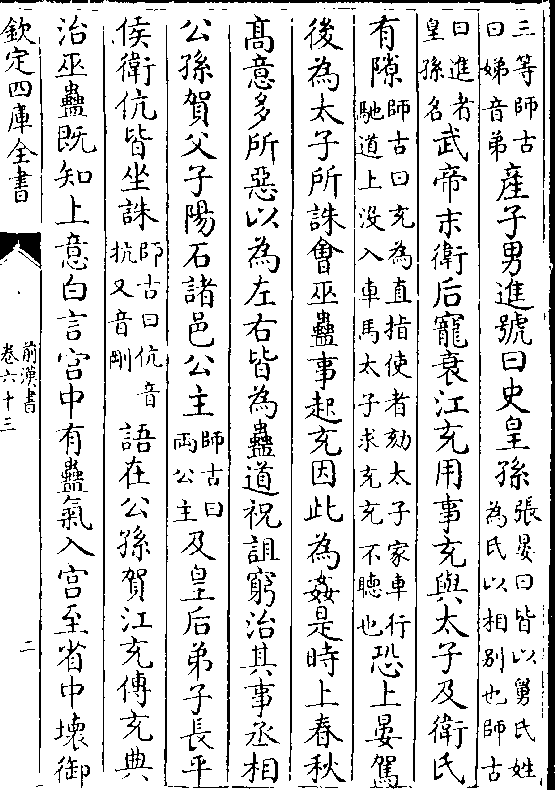 三等師古曰娣音弟産子男進號曰史皇孫張晏曰皆以舅氏姓為氏以相别也師古
曰進者皇孫名武帝末衛后寵衰江充用事充與太子及衛氏
有隙師古曰充為直指使者劾太子家車行馳道上没入車馬太子求充充不聽也恐上晏駕
後為太子所誅㑹巫蠱事起充因此為姦是時上春秋
髙意多所惡以為左右皆為蠱道祝詛窮治其事丞相
公孫賀父子陽石諸邑公主師古曰兩公主及皇后弟子長平
侯衛伉皆坐誅師古曰伉音抗又音剛語在公孫賀江充傳充典
治巫蠱既知上意白言宫中有蠱氣入宫至省中壊御
欽定四庫全書
前漢書
卷六十三
二